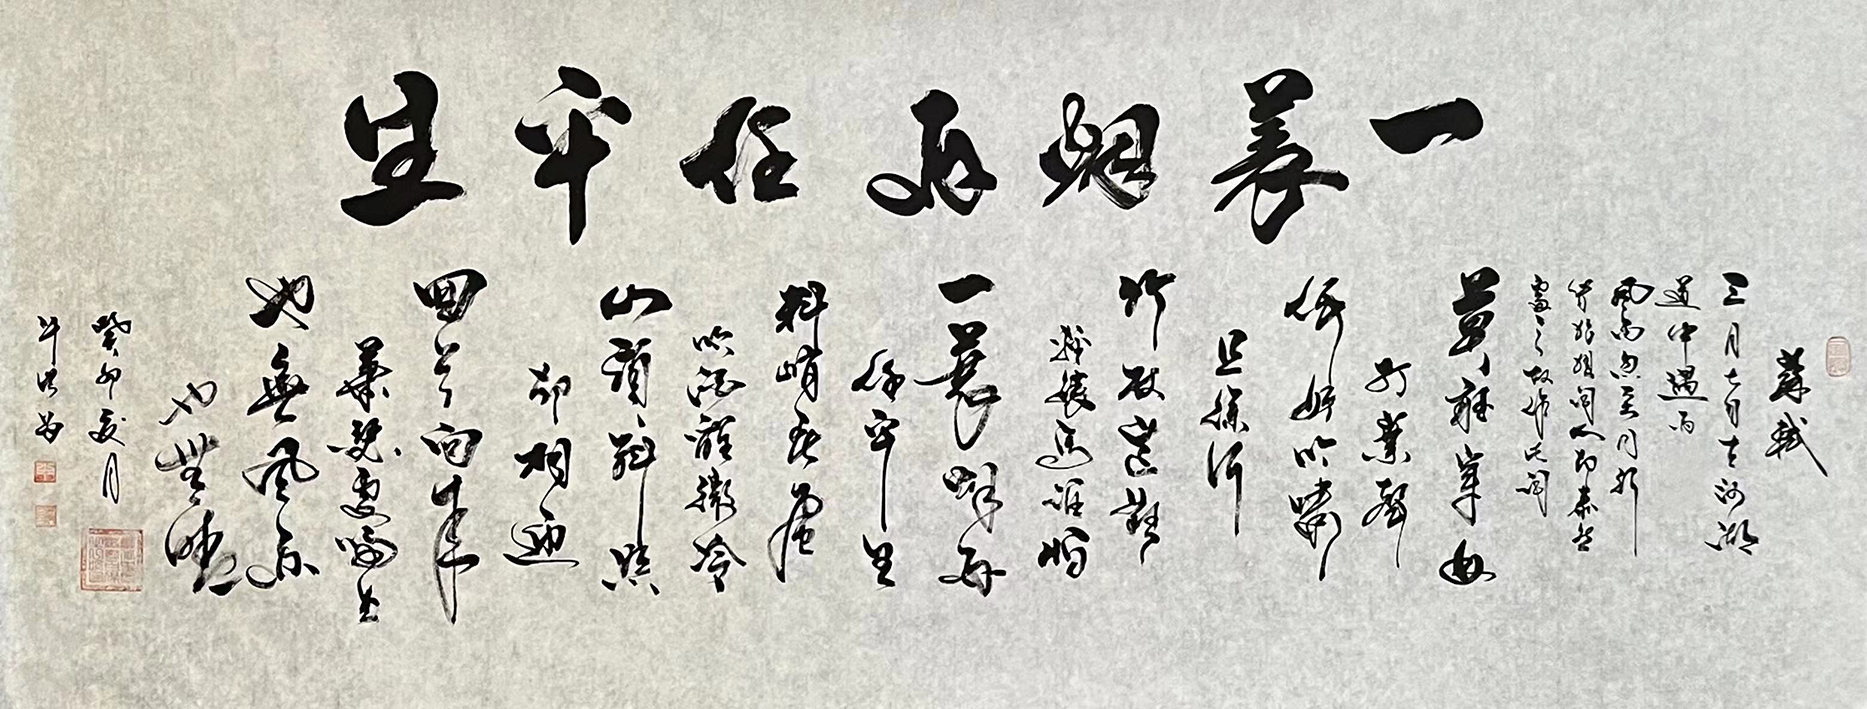 一蓑烟雨任平生
蘇軾
三月七日去沙湖
道中遇雨
風雨忽至同行
故作此詞
莫聽穿林
打葉聲
何妨吟嘯
且徐行
竹杖芒鞋
輕勝馬誰怕
一蓑烟雨
任平生
料峭春風
吹酒醒微冷
山頭斜照
却相迎
回首向來
蕭瑟處歸去
也無風雨
也無晴
癸卯夏月